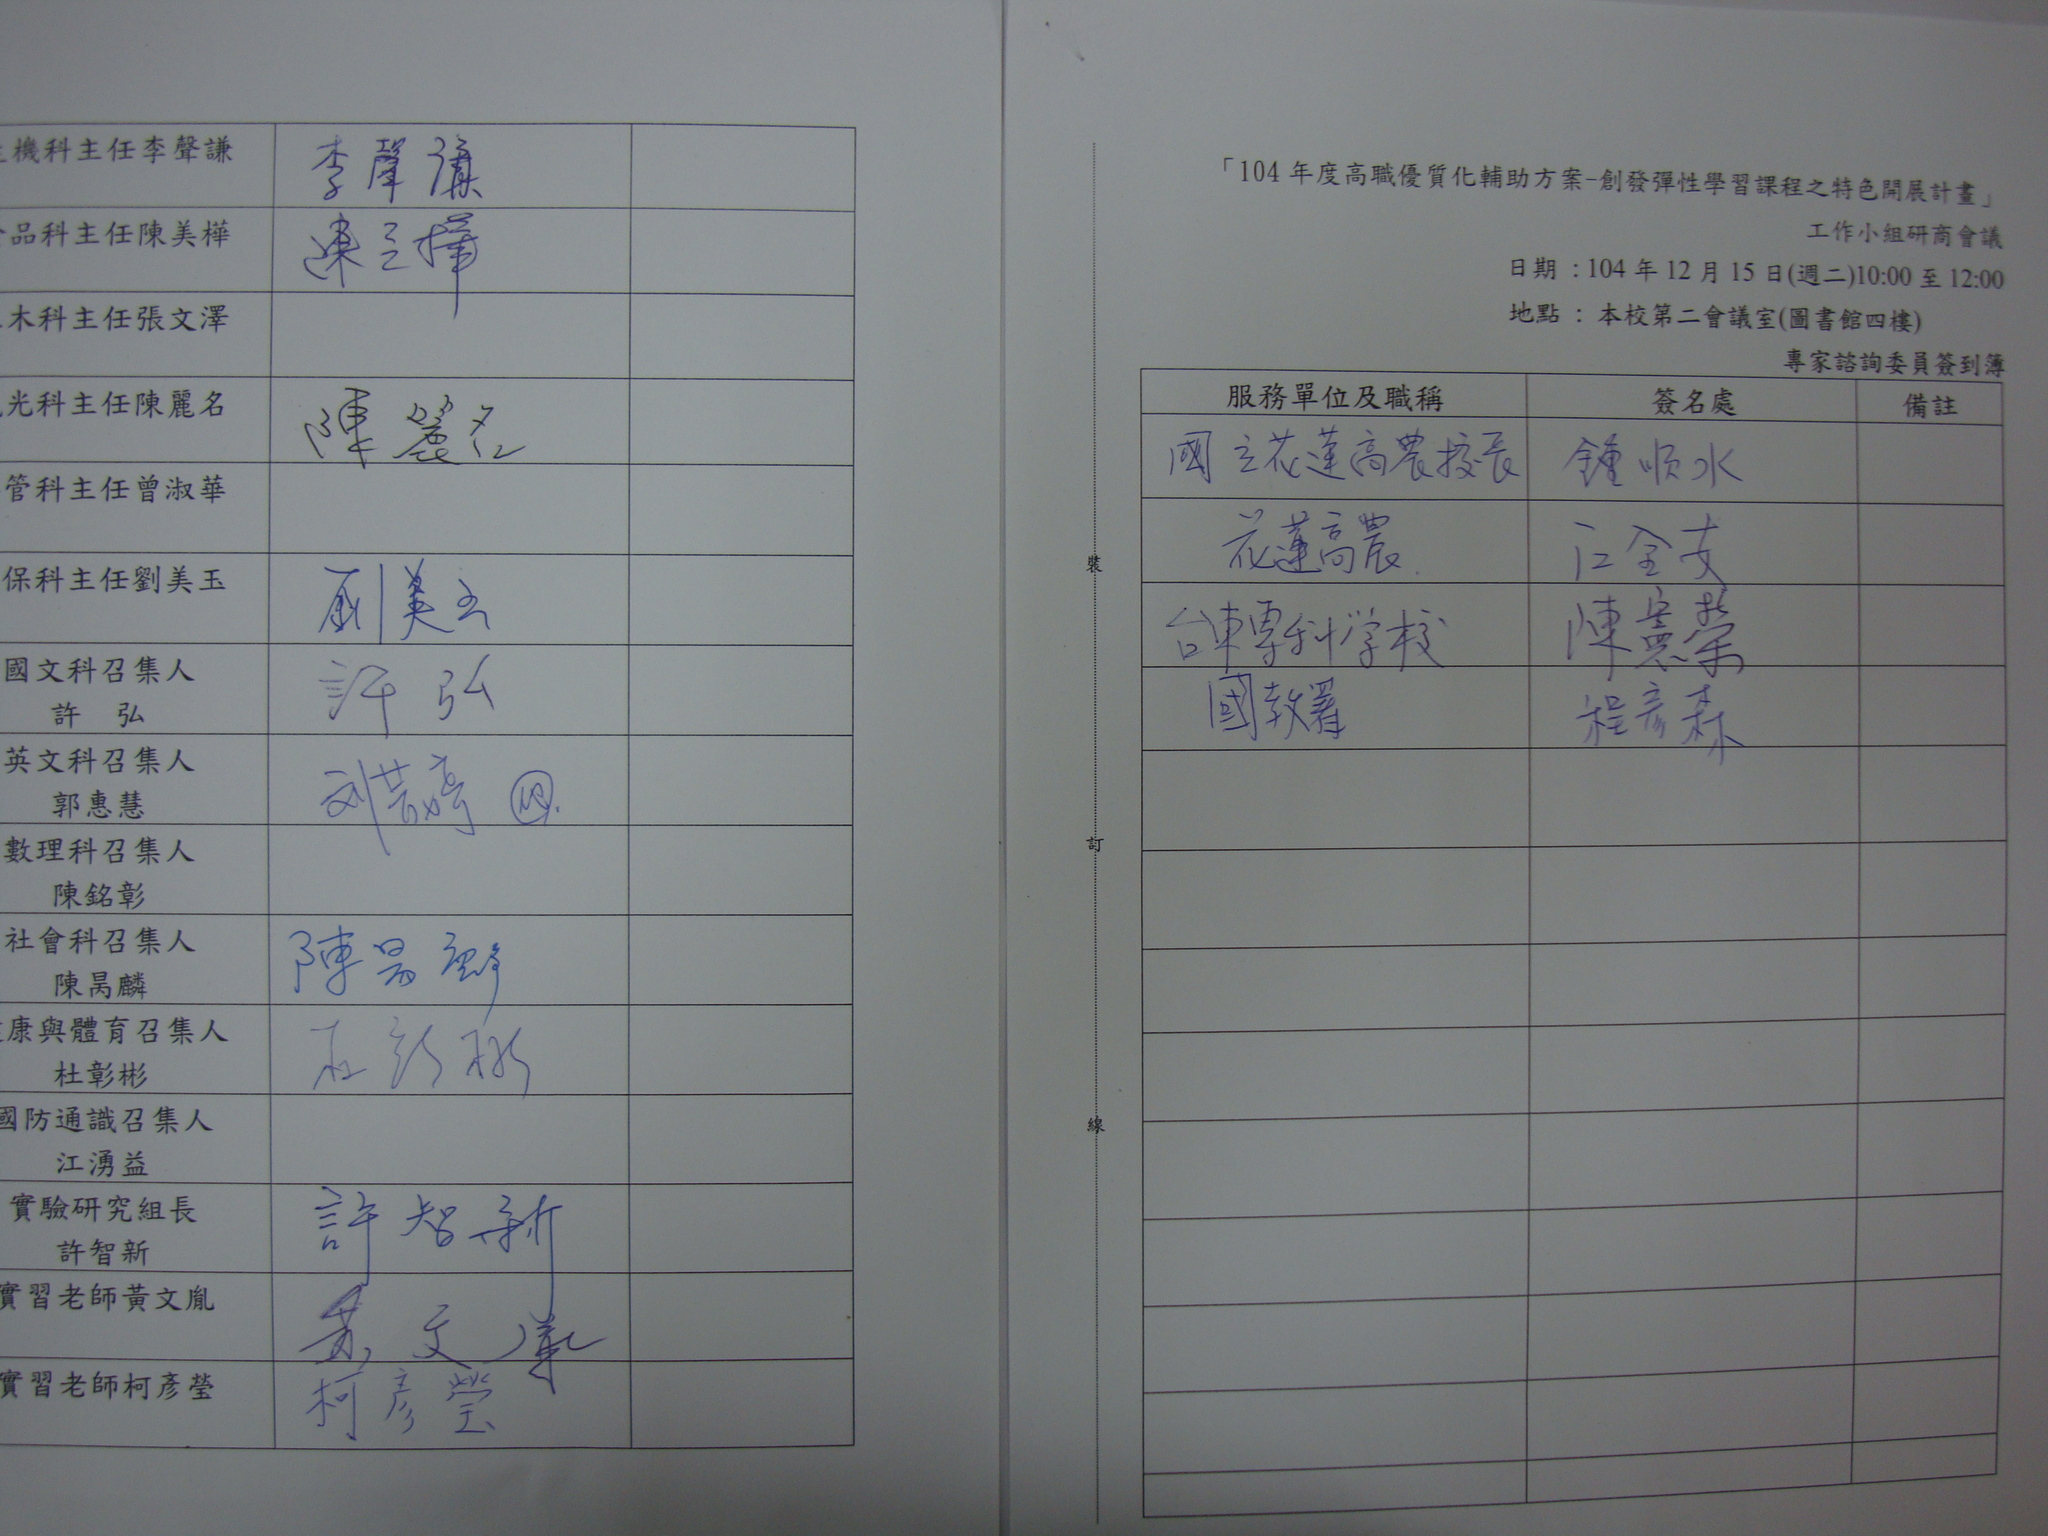 機科主任李聲謙 李聲謙
品科主任陳美樺 陳美樺
木科主任張文澤
光科主任陳麗名 陳麗名
管科主任曾淑華
保科主任劉美玉 劉美玉
國文科召集人
許 弘 許弘
英文科召集人
郭惠慧
數理科召集人
陳銘彰
社會科召集人
陳昺麟 陳昺麟
康與體育召集人
杜彰彬 杜彰彬
國防通識召集人
江湧益
實驗研究組長
許智新 許智新
實習老師黃文胤 黃文胤
實習老師柯彥瑩 柯彥瑩
「104 年度高職優質化輔助方案-創發彈性學習課程之特色開展計畫」
工作小組研商會議
日期 :104 年 12 月 15 日(週二)10:00 至 12:00
地點 : 本校第二會議室(圖書館四樓)
專家諮詢委員簽到簿
服務單位及職稱 簽名處 備註
國立花蓮高農校長 鍾順水
花蓮高農
台東專科学校 陳憲榮
國教署 程彥森
裝
訂
線